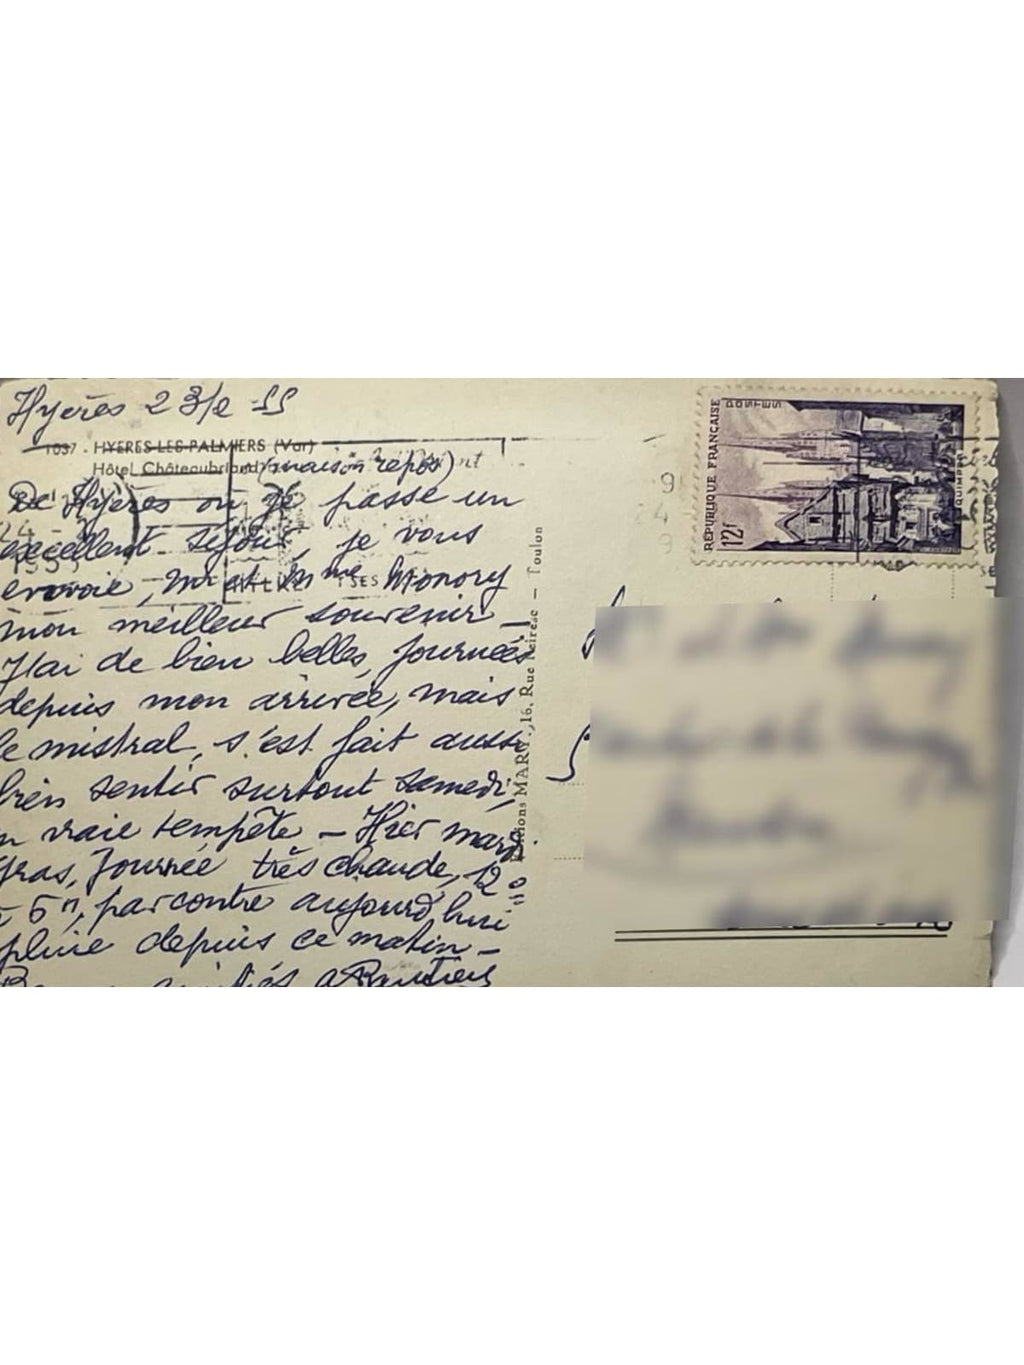 Hyères 23/2 55
1037 - HYERES-LES-PALMIERS (Var)
Hôtel Châteaubriand (maison repos)
De Hyères ou je passe un
excellent séjour, je vous
envoie, Mr et Mme Honory
mon meilleur souvenir _
J'ai de bien belles, journées
depuis mon arrivée, mais
le mistral, s'est fait aussi
bien sentir surtout samedi,
vraie tempête – Hier mardi
gras, journée très chaude, 12°
à 5h, par contre aujourd'hui
pluie depuis ce matin –
amitiés
Editions MAR 16, Rue Peiresc – Toulon
RÉPUBLIQUE FRANÇAISE
POSTES
12f
QUIMPER
24
1955